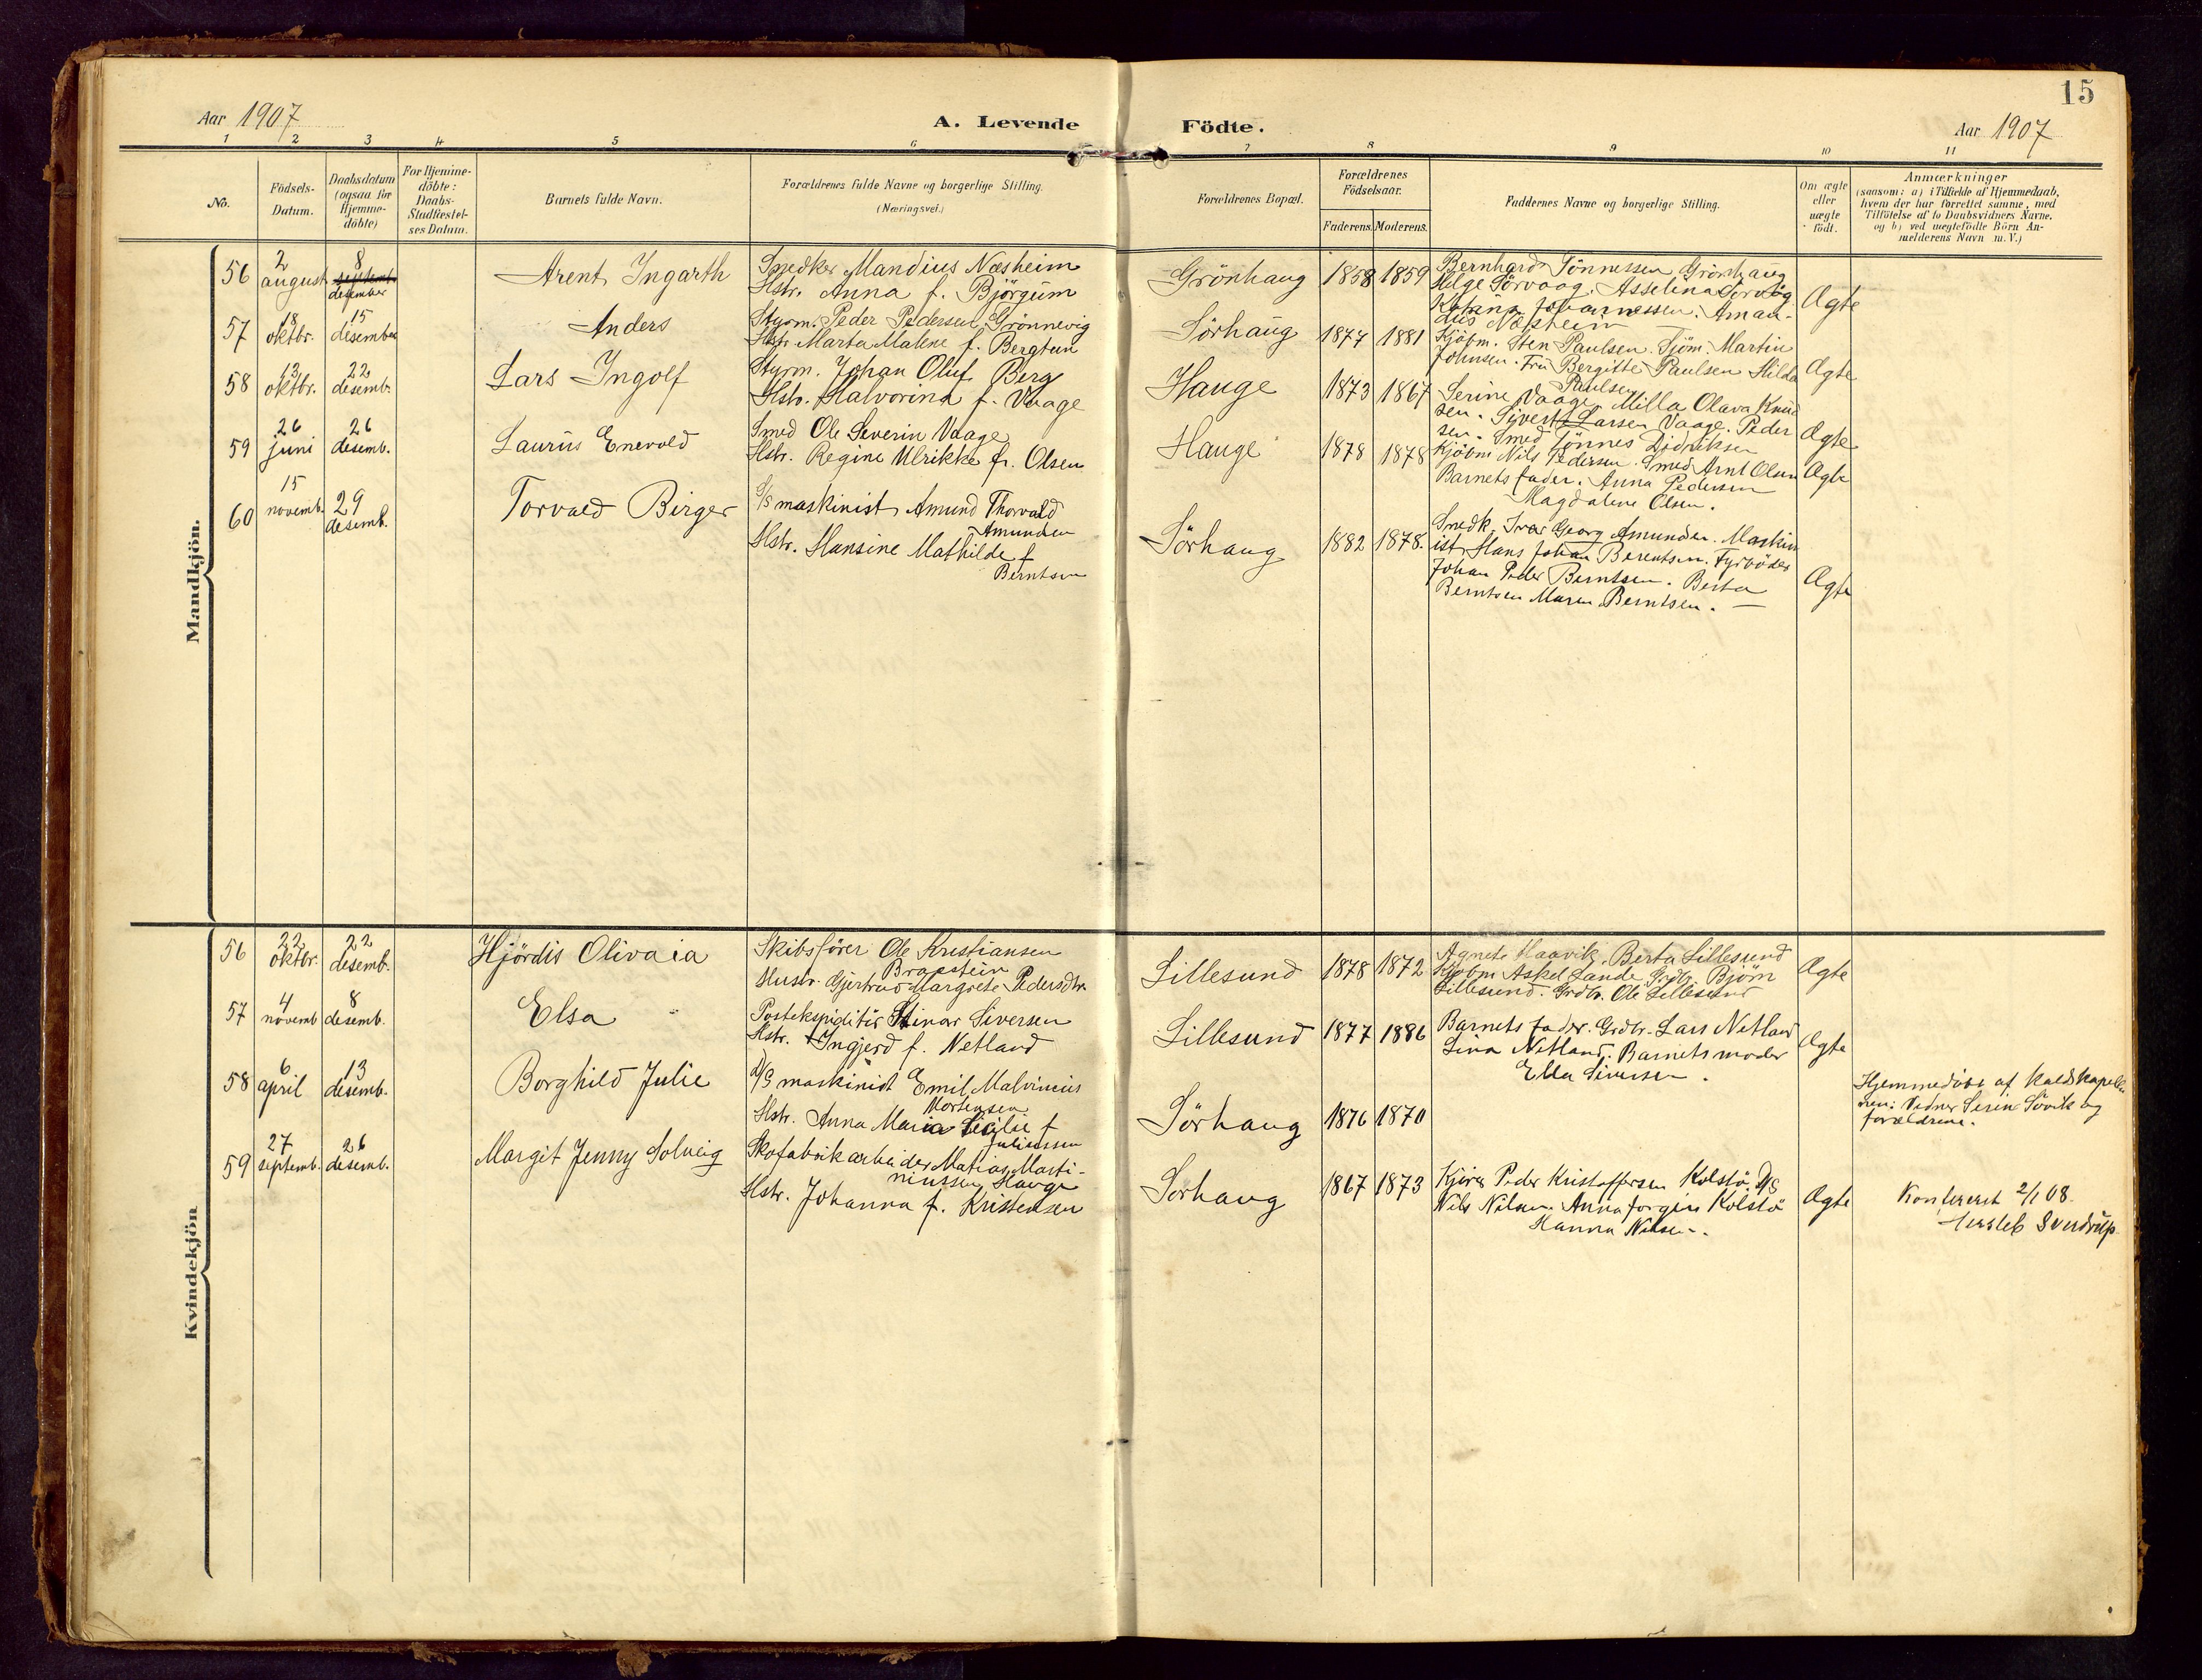 15
Aar 1907
A. Levende Födte.
Aar 1907
1 2 3 4 5 6 7 8 9 10 11
No.
Födsels-Datum.
Daabsdatum (ogsaa for Hjemme-döbte)
For Hjemme-döbte: Daabs-Stadfæstel-ses Datum.
Barnets fulde Navn.
Forældrenes fulde Navne og borgerlige Stilling.
(Næringsvei.)
Forældrenes Bopæl.
Forældrenes Födselsaar.
Faderens. Moderens.
Faddernes Navne og borgerlige Stilling.
Om ægte eller uægte födt.
Anmærkninger
(saasom: a) i Tilfælde af Hjemmedaab,
hvem der har forrettet samme, med
Tilföielse af to Daabsvidners Navne.
og b) ved uægtefödte Börn An-
melderens Navn m. V.)
Mandkjön.
56 2 august 8 septemb. desember
Arent Ingarth
Snedker Mandius Næsheim
Hstr. Anna f. Björgum
Grönhaug 1858 1859
Bernhard Tönnessen Grönhaug
Helge Sörvaag. Asselina Sörvaag
Katrina Johannessen. Aman-
dus Næsheim
Ægte
57 18 oktbr. 15 desember
Anders
Styrm. Peder Pedersen Grönnevig
Hstr. Marta Malene f. Bergtun
Sörhaug 1877 1881
Kjöbm. Sten Paulsen. Sjöm. Martin
Johnsen. Fru Bergitte Paulsen Hilda
Paulsen
Ægte
58 13 oktbr. 22 desemb.
Lars Ingolf
Styrm. Johan Oluf Berg
Hstr. Halvorina f. Vaage
Hauge 1873 1867
Serine Vaage Milla Olava Knud
sen. Sivert Larsen Vaage. Peder
sen. Smed Tönnes Didriksen
Ægte
59 26 juni 26 desemb.
Laurus Enevold
Smed Ole Severin Vaage
Hstr. Regine Ulrikke f. Olsen
Hauge 1878 1878
Kjöbm Nils Pedersen. Smed Arnt Olsen
Barnets fader. Anna Pedersen
Magdalene Olsen.
Ægte
60 15 novemb. 29 desemb.
Torvald Birger
S/S maskinist Amund Thorvald
Amundsen
Hstr. Hansine Mathilde f
Berntsen
Sörhaug 1882 1878.
Snedk. Ivar Georg Amundsen. Maskin
ist Hans Johan Berentsen. Fyrböder
Johan Peder Berntsen. Berta
Berntsen Maren Berntsen. —
Ægte
Kvindekjön
56 22 oktbr. 22 desemb.
Hjördis Olivaia
Skibsförer Ole Kristiansen
Bragstein
Hustr. Gjertrud Margrete Pedersdtr.
Lillesund 1878 1872
Agnete Haavik. Berta Lillesund
Kjöbm Askel Lande Grdbr. Björn
Lillesund. Grdbr. Ole Lillesund
Ægte
57 4 novemb 8 desemb.
Elsa
Postekspiditör Einar Siversen
Hstr. Ingjerd f. Netland
Lillesund 1877 1886
Barnets fader. Grdbr. Lars Netland
Lina Netland. Barnets moder
Ella Siversen.
Ægte
58 6 april 13 desemb.
Borghild Julie
D/S maskinist Emil Malvinius
Mortensen
Hstr. Anna Maria Secilie f
Juliussen
Sörhaug 1876 1870
Hjemmedöbt af Kaldskapella
nen: Vidner Serin Sövik og
forældrene.
59 27 septemb. 26 desemb.
Margit Jenny Solveig
Skofabrikarbeider Matias Marti-
niussen Hauge
Hstr. Johanna f. Kristensen
Sörhaug 1867 1873
Peder Kristoffersen Kolstö. D/S
Nils Nilsen. Anna Kolstö
Hanna Nilsen.
Ægte
Konfereret 2/1 08.
Hersleb Sverdrup